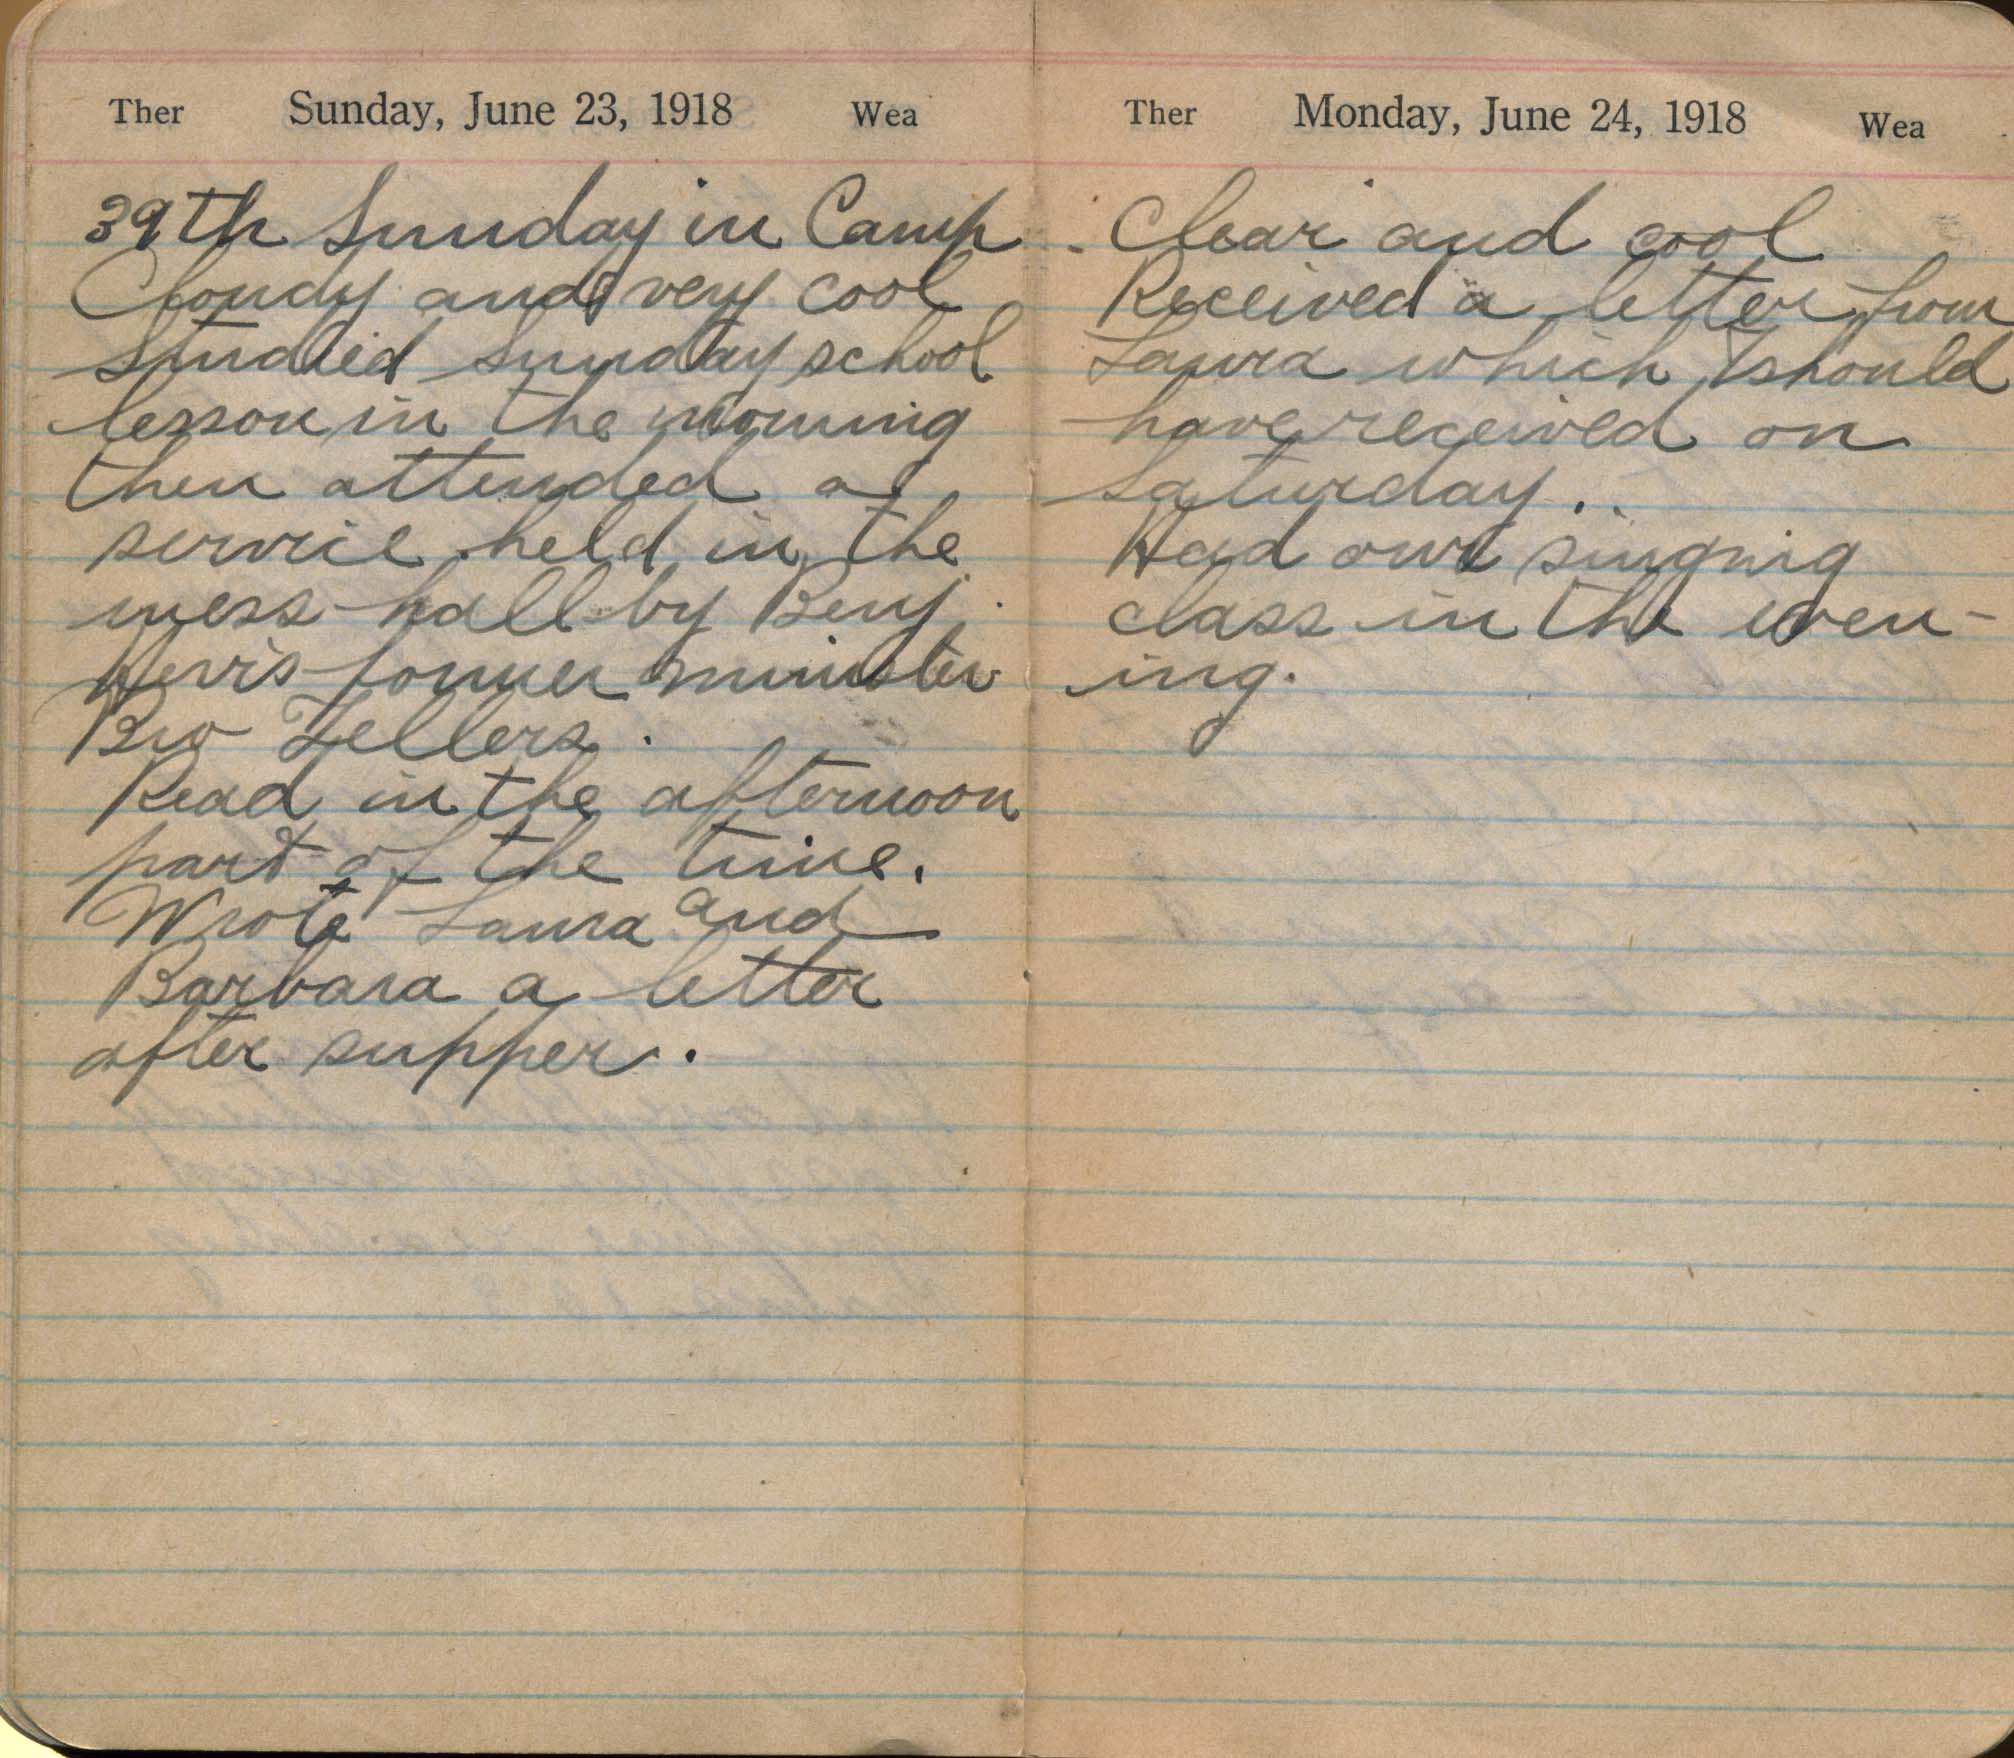 Ther Sunday, June 23, 1918 Wea
39th Sunday in Camp
Cloudy and very cool
Studied Sunday school
lesson in the morning
then attended a
service held in the
mess hall by Benj.
former minister
Bro Zellers.
Read in the afternoon
part of the time.
Wrote Laura and
Barbara a letter
after supper.
Ther Monday, June 24, 1918 Wea
Clear and cool
Received a letter from
Laura which I should
have received on
Saturday.
Had our singing
class in the even-
ing.